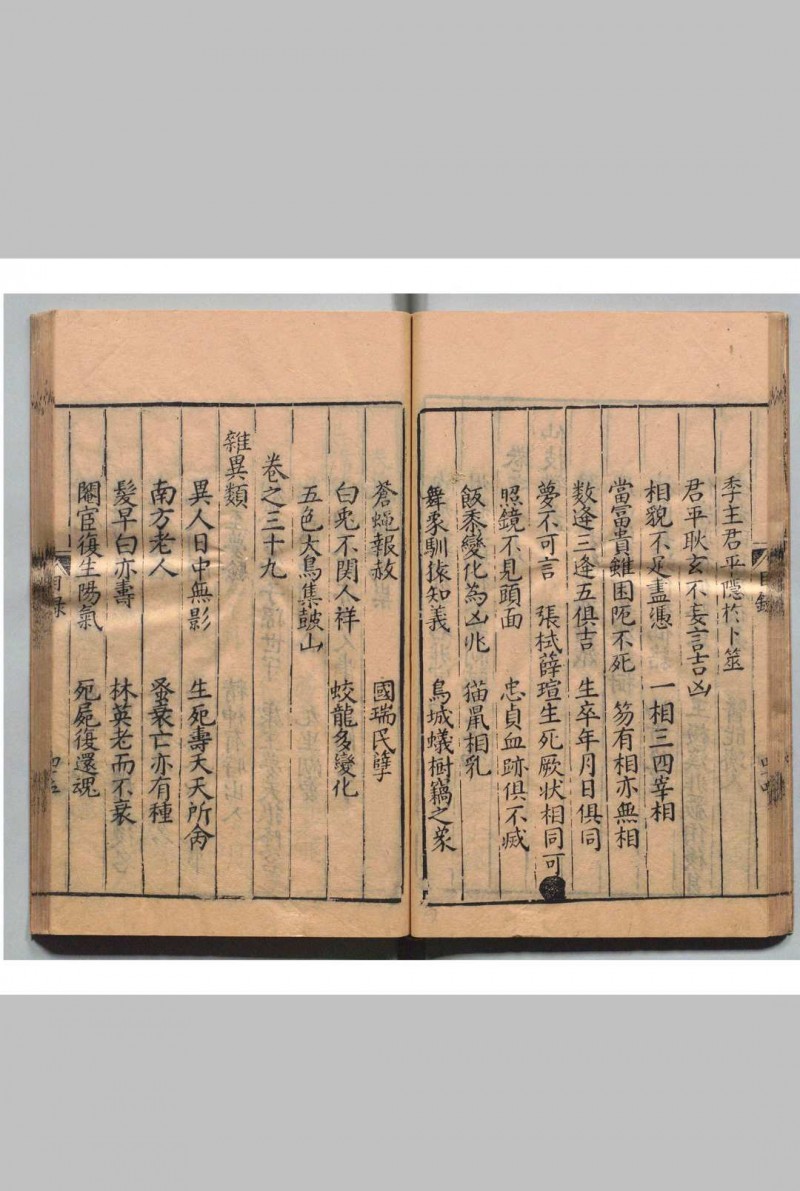 季主君平隱於卜筮
君平耿玄不妄言吉凶
相貌不足盡憑　一相三四宰相
當冨貴雖困阨不死　笏有相亦無相
数逢三逢五俱吉　生卒年月日俱同
夢不可言　張栻薛瑄生死厥状相同可
照鏡不見頭面　忠貞血跡俱不滅
飯黍變化為凶兆　猫鼠相乳
舞象馴猿知義　烏城蟻樹竊之蒙
目錄
蒼蠅報赦　國瑞民孽
白兎不関人祥　蛟龍多變化
五色大鳥集鼓山
卷之三十九
雜異類
異人日中無影　生死壽夭天所命
南方老人　蚤衰亡亦有種
髮早白亦壽　林英老而不衰
閹宦復生陽氣　死屍復還魂
目錄
四五